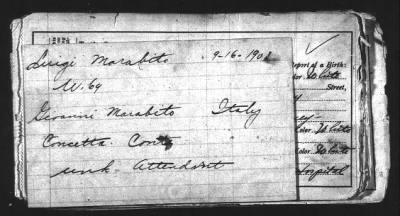 Luigi Marabito 9-16-1902
W. 69
Giovanni Marabito Italy
Concetta Conty
unk. Attendant
Report of a Birth:
Color, White
Street,
Color, White
Color, White
Hospital